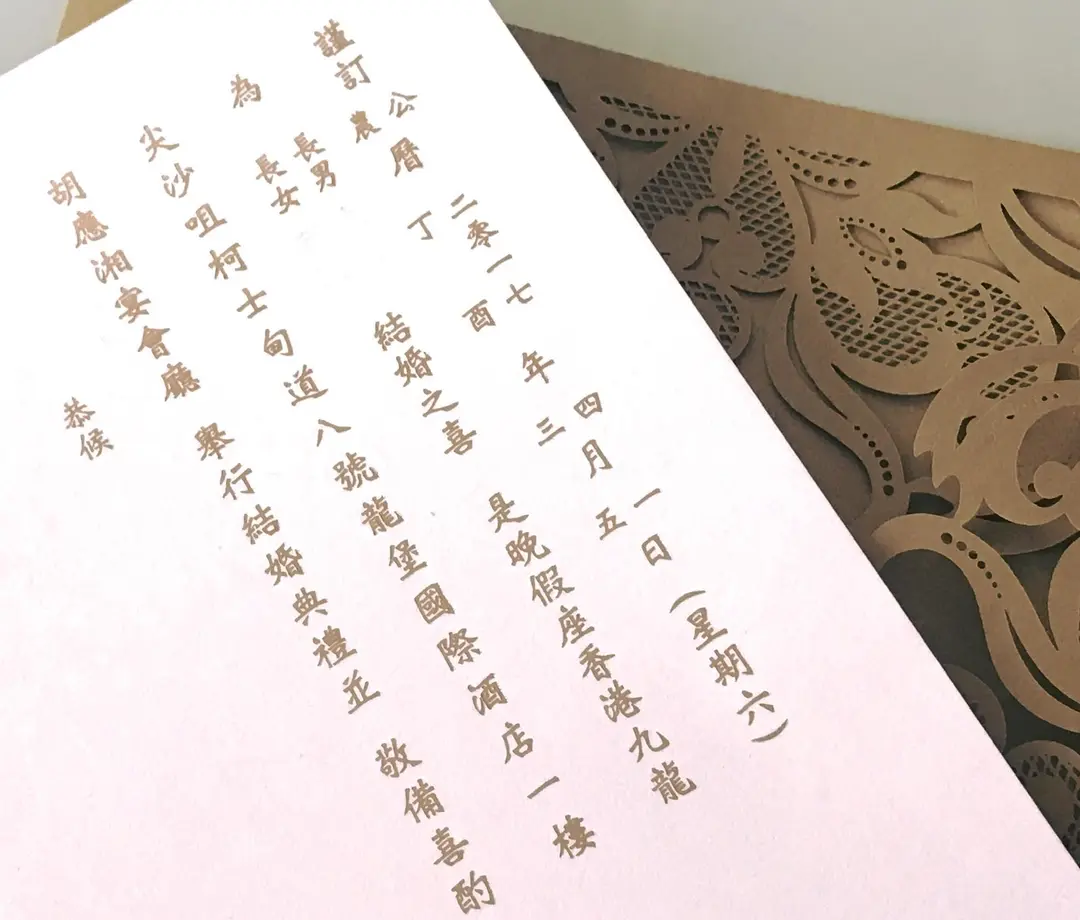 謹訂
公曆 二零一七年四月一日(星期六)
農 丁酉 三 五
為 長男 長女 結婚之喜 是晚假座香港九龍
尖沙咀柯士甸道八號龍堡國際酒店一樓
胡應湘宴會廳 舉行結婚典禮並 敬備喜酌
恭候